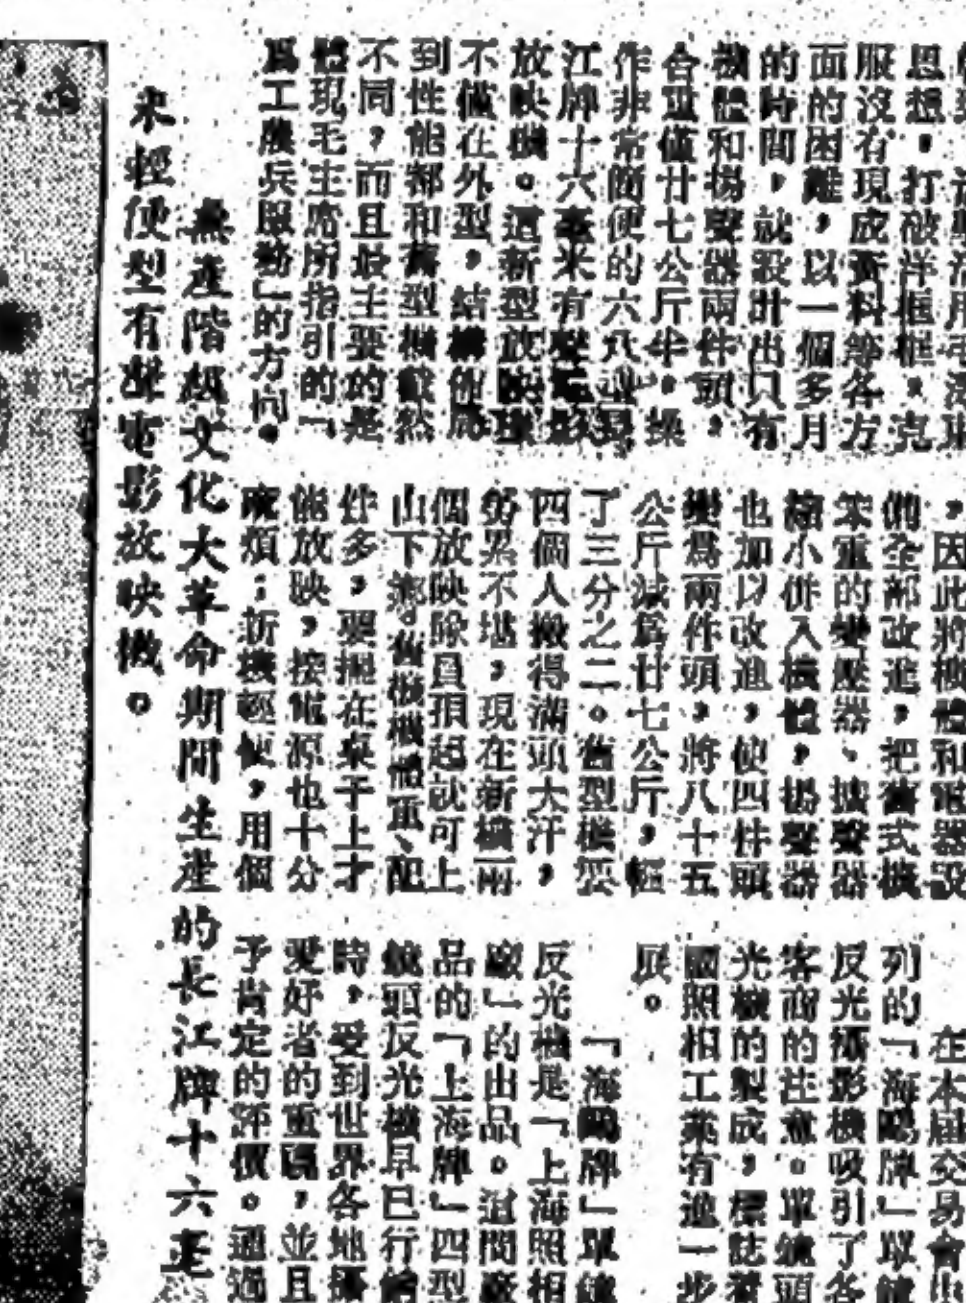 思想，打破洋框框，克
服沒有現成資料等各方
面的困難，以一個多月
的時間，就設計出只有
機體和揚聲器兩件頭，
合重僅廿七公斤半。操
作非常簡便的六
江牌十六毫米有聲電影
放映機。這新型放映機
不僅在外型，結構佈局
到性能都和舊型機截然
不同，而且最主要的是
體現毛主席所指引的「
爲工農兵服務」的方向。
，因此將機體和電器設
備全部改進，把舊式機
笨重的變壓器、擴聲器
縮小併入機體，揚聲器
也加以改進，使四件頭
變爲兩件頭，將八十五
公斤減爲廿七公斤，輕
了三分之二。舊型機要
四個人搬得滿頭大汗，
勞累不堪，現在新機兩
個放映隊員揹起就可上
山下鄉。舊機機體重、配
件多，要擺在桌子上才
能放映，接電源也十分
麻煩；新機輕便，用個
在本屆交易會出
列的「海鷗牌」單鏡
反光攝影機吸引了各
客商的注意。單鏡頭
光機的製成，標誌着
國照相工業有進一步
展。
「海鷗牌」單鏡
反光機是「上海照相
廠」的出品。這間廠
品的「上海牌」四型
鏡頭反光機早已行銷
時，受到世界各地攝
愛好者的重視，並且
予肯定的評價。通過
無產階級文化大革命期間生產的長江牌十六毫
米輕便型有聲電影放映機。